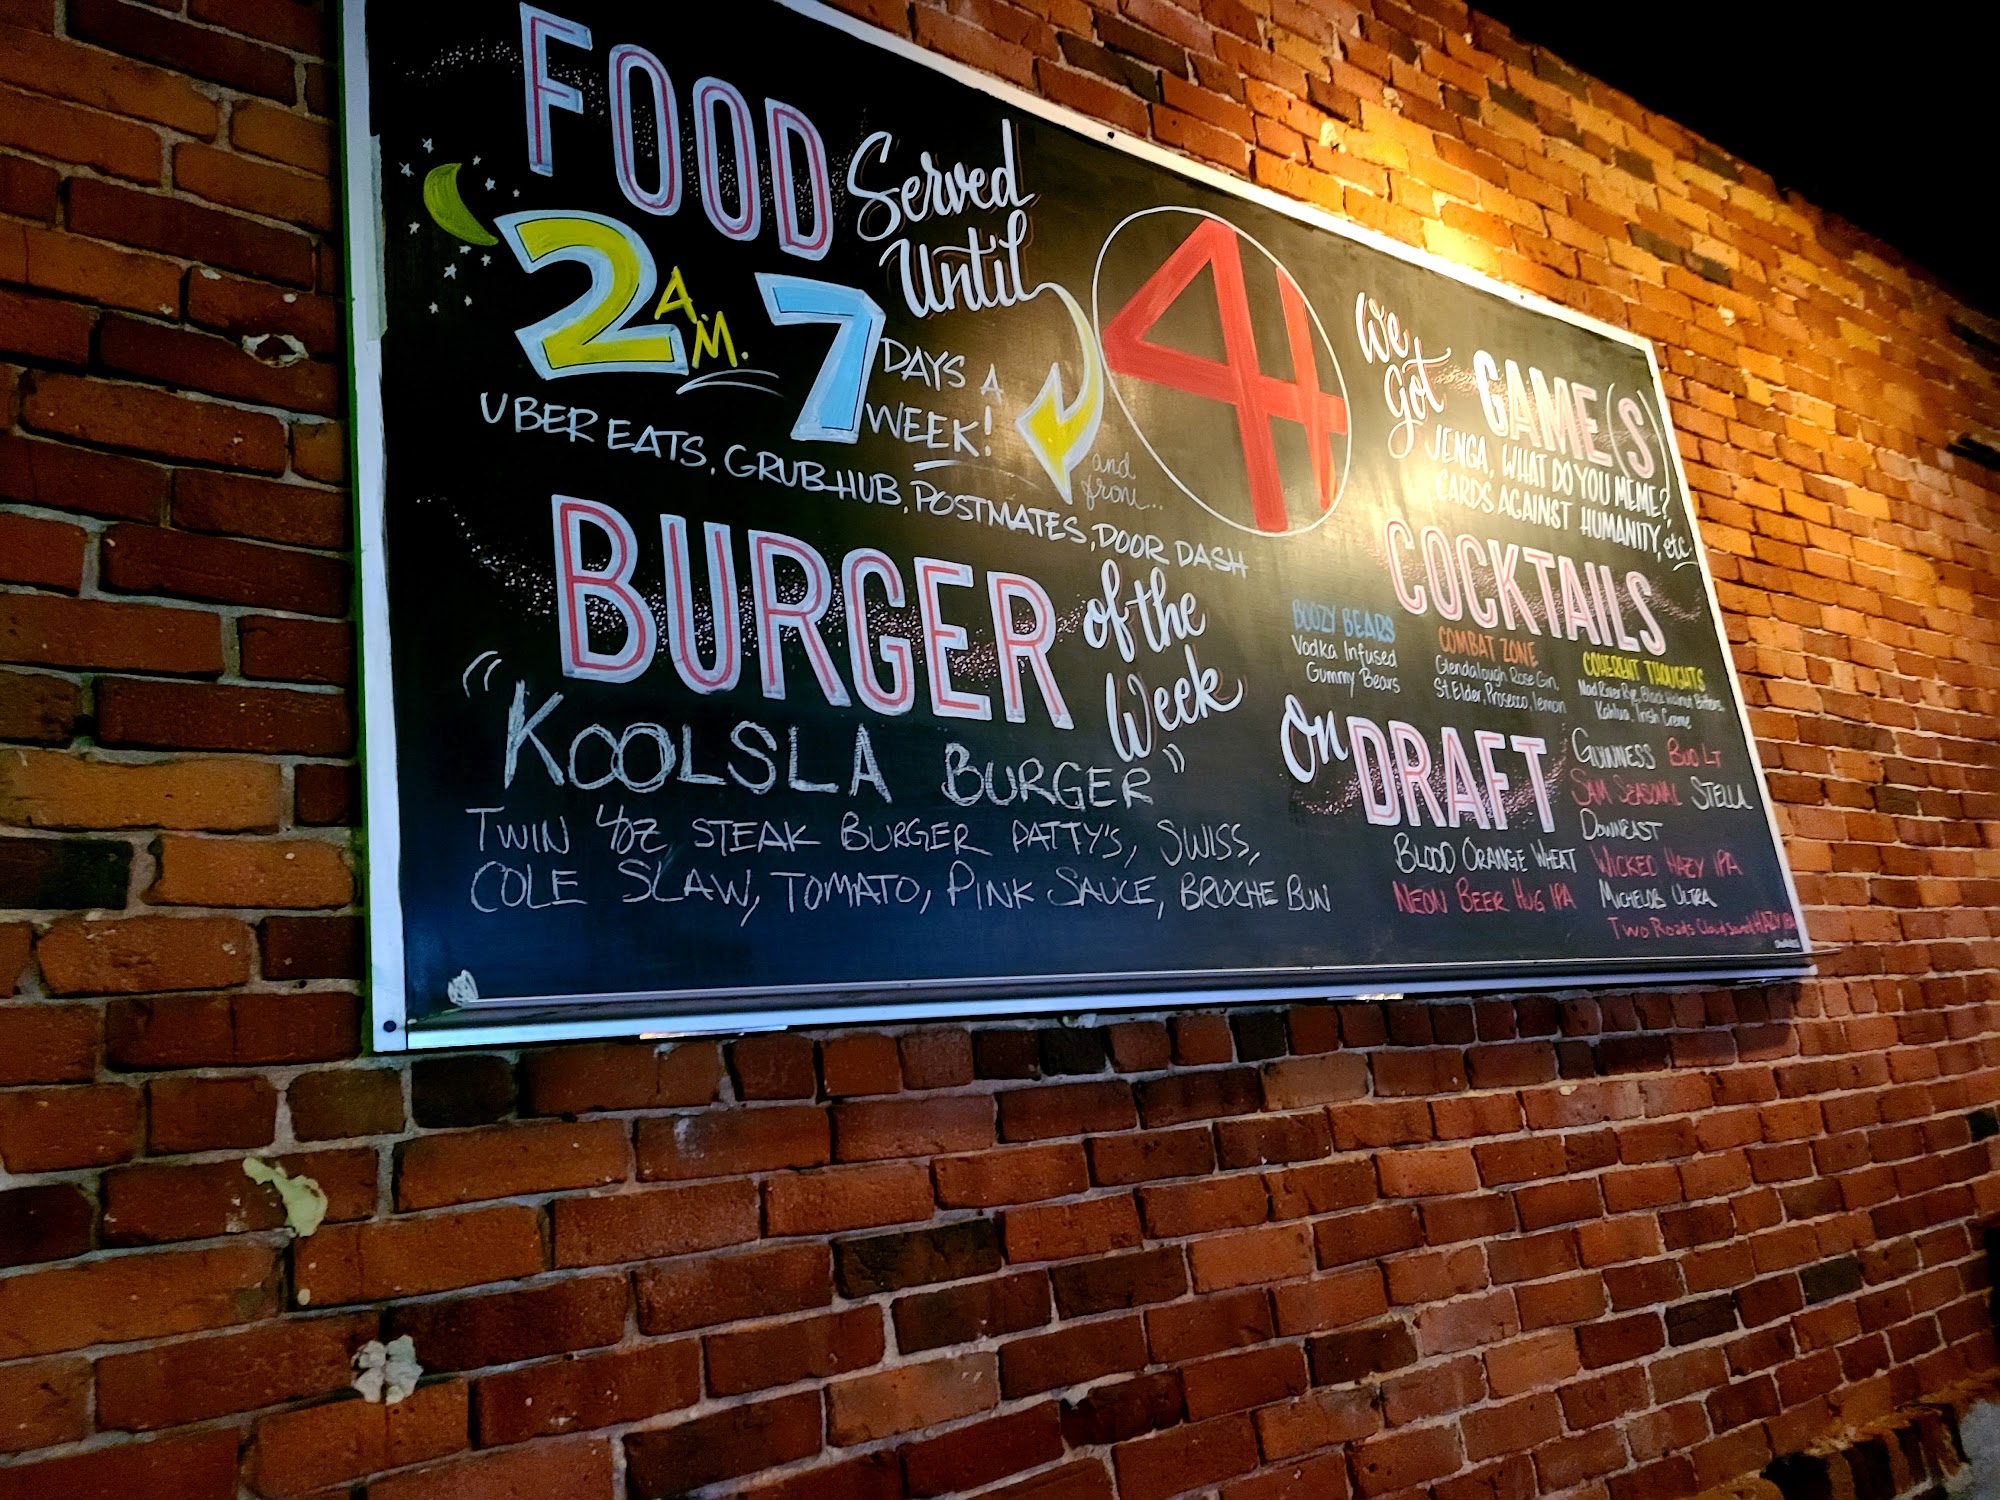 FOOD Served Until
2 A.M. 7 DAYS A WEEK!
and from...
UBER EATS, GRUBHUB, POSTMATES, DOOR DASH
BURGER of the Week
"KOOLSLA BURGER"
TWIN 4OZ STEAK BURGER PATTY'S, SWISS,
COLE SLAW, TOMATO, PINK SAUCE, BRIOCHE BUN
4
We got GAME(S)
JENGA, WHAT DO YOU MEME?,
CARDS AGAINST HUMANITY, etc
COCKTAILS
BOOZY BEARS
Vodka Infused
Gummy Bears
COMBAT ZONE
Glendalough Rose Gin,
St Elder, Prosecco, lemon
COHERENT THOUGHTS
Mad River Rye, Black Walnut Bitters,
Kahlua, Irish Creme
On DRAFT
GUINNESS BUD LT
SAM SEASONAL STELLA
DOWNEAST
BLOOD ORANGE WHEAT
WICKED HAZY IPA
NEON BEER HUG IPA
MICHELOB ULTRA
Two Roads Cloud Sourced HAZY IPA